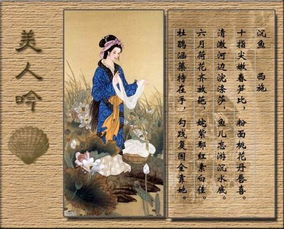 美人吟
沉鱼 西施
十指尖嫩春笋比,粉面桃花丹唇喜。
清澈河边浣莎,鱼儿忘游沉水底。
六月荷花齐放艳,姹紫那红素白佳。
杜鹃涵持在手,勾践复国全靠她。